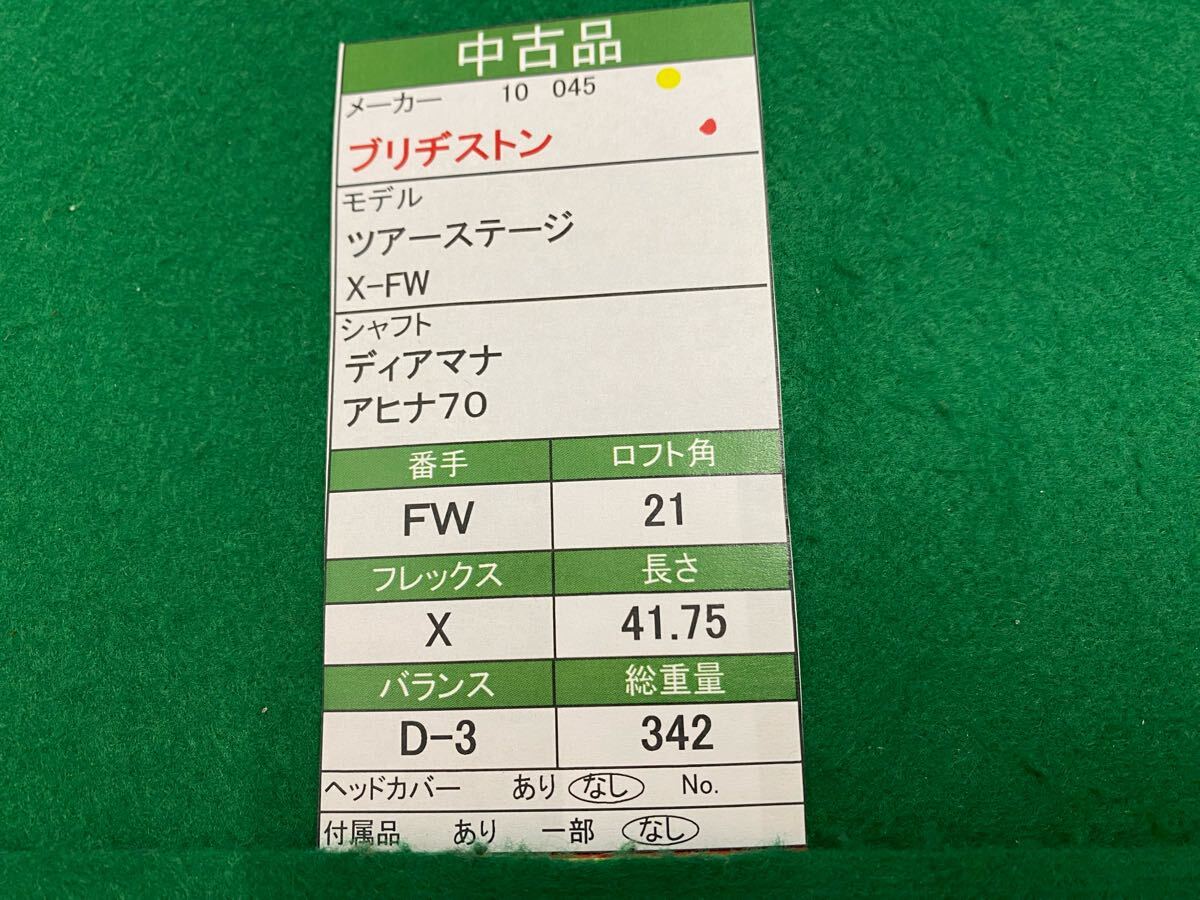 中古品
メーカー 10 045
ブリヂストン
モデル
ツアーステージ
X-FW
シャフト
ディアマナ
アヒナ70
番手 ロフト角
FW 21
フレックス 長さ
X 41.75
バランス 総重量
D-3 342
ヘッドカバー あり なし No.
付属品 あり 一部 なし